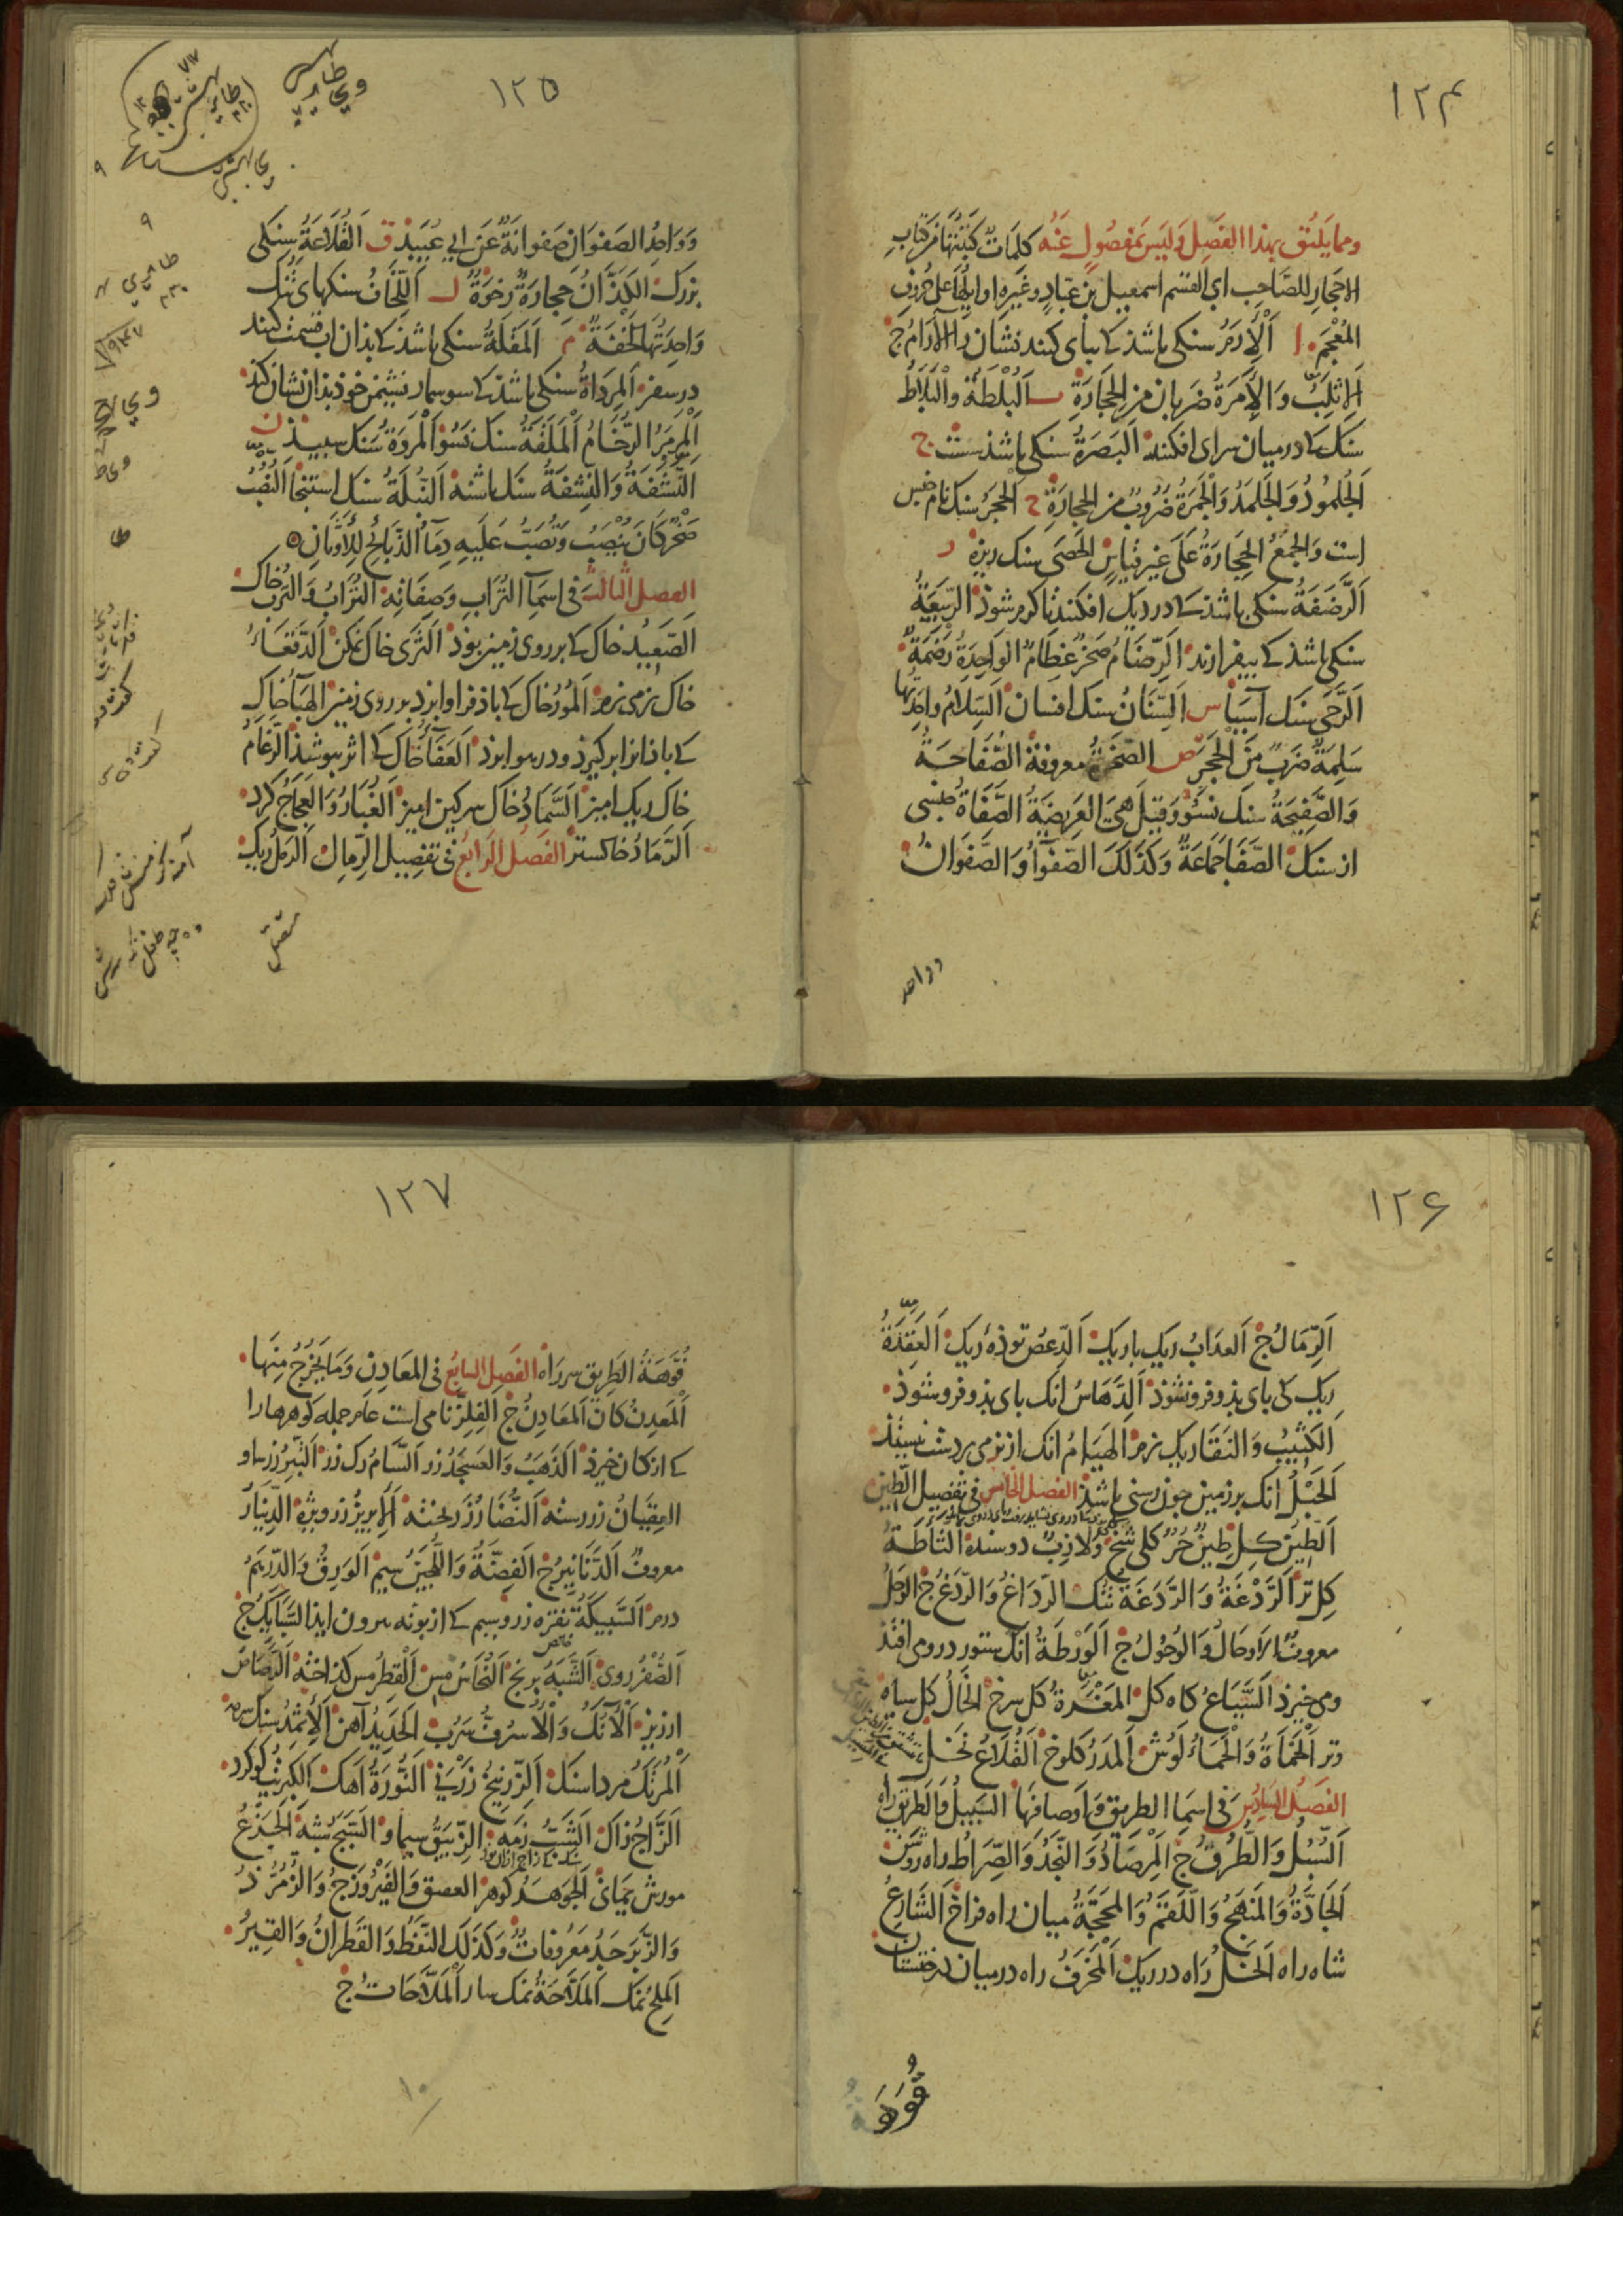 ۱۲۴
ومما يليق بهذا الفصل وليس بمفصول عنه كلمات كتبتها من كتاب
الاحجار للصاحب ابى القسم اسمعيل بن عباد وغيره اوايلها على حروف
المعجم ا اَلْإِرَمُ سنكى باشذ كه بباى كنند نشان را الآرام ج
اَلاِثْلِبُ وَالاَمَرَةُ ضربان من الحِجَارَةِ ب اَلْبُلْطَةُ وَالْبَلَاطُ
سنك كه درميان سراى افكنند اَلبَصْرَةُ سنكى باشذ سست ج
اَلجُلْمُودُ وَالجَلْمَدُ وَالجَمْرَةُ ضُرُوبٌ من الحِجَارَةِ ح اَلْحَجَرُ سنك نام جنس
است وَالجَمْعُ الحِجَارَةُ عَلَى غيرِ قياسٍ الحَصَى سنك ريزه ر
اَلرَّضَفَةُ سنكى باشذ كه در ديك افكنند تا كرم شوذ الرَّبِيعَةُ
سنكى باشذ كه بيفرازند اَلرِّضَامُ صَخْرٌ عِظَامٌ الوَاحِدَةُ رَضَمَةٌ
اَلرَّحَى سنك آسيا س اَلسِّنَانُ سنك افسان اَلسِّلَامُ واحدتها
سَلِمَةٌ ضَرْبٌ مِنَ الحَجَرِ ص الصَّخْرَةُ معروفة الصُّفَّاحَةُ
وَالصَّفِيحَةُ سنك نسو وَقيل هى العَرِيضَةُ الصَّفَاةُ جنسى
از سنك الصَّفَا جَمَاعَةٌ وَكَذَلكَ الصَّفْوَاءُ وَالصَّفْوَانُ
وواحد
۱۲۵
وَوَاحِدُ الصَفْوَانِ صَفْوَانَةٌ عَن ابى عُبَيد ق اَلْقُلَاعَةُ سنكى
بزرك اَلْكَذَّانُ حِجَارَةٌ رِخْوَةٌ ل اَللِّخَافُ سنكهاى تنك
وَاحِدَتُهَا لَخْفَةٌ م اَلْمَقْلَةُ سنكى باشذ كه بذان اب قسمت كنند
در سفر اَلْمِرْدَاةُ سنكى باشذ كه سوسمار نشيمن خوذ بذان نشان كند
اَلْمَرْمَرُ الرُّخَامُ اَلْمَلَقَةُ سنك نسو اَلْمَرْوَةُ سنك سپيذ ن
اَلنَّشْفَةُ وَالنِّشْفَةُ سنك پاشنه اَلنُّبْلَةُ سنك استنجا اَلنُّصُبُ
صَخْرٌ كَانَ يُنْصَبُ وَتُصَبُّ عَلَيهِ دِمَاءُ الذَّبَائِحِ لِلْأَوْثَانِ
الفصل الثالث فى اسماء التراب وصفاته التُّرَابُ وَالتُّرْبُ خاك
اَلصَّعِيدُ خاك كه بر روى زمين بوذ اَلثَّرَى خاك نمكن اَلدَّقْعَاءُ
خاك نرمى نرم اَلمُورُ خاك كه باذ فرا و ابرد بر روى زمين الهَبَاءُ خاك
كه باذ انرا بر كيرذ و در هوا برذ اَلعَفَاءُ خاك كه اثر بپوشذ الرَّغَامُ
خاك ريك اميز اَلسَّمَادُ خاك سركين اميز اَلْغُبَارُ وَالعَجَاجُ كرد
اَلرَّمَادُ خاكستر الفصل الرابع فى تفصيل الرمال الرمل ريك
۱۲۶
اَلرِّمَالُ ج اَلعَدَابُ ريك باريك اَلدِّعْصُ توذۀ ريك اَلعَقِدَةُ
ريك كى پاى بذو فرو نشوذ اَلدَّهَاسُ انك پاى بذو فرو شوذ
اَلكَثِيبُ وَالنَقَا ريك نرم اَلهَيَامُ انك از نرمى بر دست نيستد
اَلْحَبْلُ انك بر زمين چون رسنى باشذ الفصل الخامس فى تفصيل الطين
اَلطِّينُ كِل طِينٌ حُرٌّ كلى شخ وَلَازِبٌ دوسنده اَلثَّأْطَةُ
كِل تر اَلرَّدْغَةُ وَالرَّدَغَةُ تنك الرِّدَاغُ وَالرَّدَغُ ج الوَحَلُ
معروف الاَوحَالُ وَالوُحُولُ ج اَلوَرْطَةُ انك ستور درو مى افتذ
ومى خيزذ اَلسَّيَاعُ كاه كل اَلمَغْرَةُ كل سرخ اَلْخَالُ كل سياه
وتر اَلْحَمْأَةُ وَالْحَمَأُ لوش اَلمَدَرُ كلوخ اَلْقُلَاعُ
الفصل السادس فى اسماء الطريق واوصافها السَّبِيلُ وَالطَّرِيقُ راه
اَلسُّبُلُ وَالطُّرُقُ ج اَلْمِرْصَادُ وَالنَّجْدُ وَالصِّرَاطُ راه روشن
اَلجَادَّةُ وَالمَنْهَجُ وَاللَّقَمُ وَالمَحَجَّةُ ميان راه فراخ اَلشَّارِعُ
شاه راه اَلْخَلُّ راه در ريك اَلْمَخْرَفُ راه درميان درختستان
فُوَّهَةُ
۱۲۷
فُوَّهَةُ الطَّرِيق سر راه الفصل السابع فى المعادن وَمَا يَخْرُجُ مِنْهَا
اَلْمَعْدِنُ كان اَلمَعَادِنُ ج اَلفِلِزُّ نامى است عام جمله كوهرها را
كه از كان خيزذ اَلذَّهَبُ وَالعَسْجَدُ زر اَلسَّامُ رك زر اَلتِّبْرُ زر ساو
العِقْيَانُ زر رسته اَلنُّضَارُ زر اَلْإِبْرِيزُ زر ويژه الدِّينَارُ
معروف اَلدَّنَانِيرُ ج اَلْفِضَّةُ وَاللُّجَيْنُ سيم اَلوَرِقُ وَالدِّرْهَمُ
درم اَلسَّبِيكَةُ نقره زر وسيم كه از بوته بيرون ايذ السَّبَائِكُ ج
خالص
اَلصُّفْرُ روى اَلشَّبَهُ برنج اَلنُّحَاسُ مس اَلْقِطْرُ مس كذاخته اَلرَّصَاصُ
ارزيز اَلْآنُكُ وَالْأُسْرُفُّ سرب اَلحَدِيدُ آهن اَلْإِثْمِدُ سنك سرمه
اَلْمَرْتَكُ مرداسنك اَلزِّرْنِيخُ زرنى اَلنُّورَةُ اهك اَلْكِبْرِيتُ كوكرد
اَلزَّاجُ زاك اَلشَّبُّ زمه اَلزِّيبَقُ سيماو اَلسَّبَجُ شبه اَلْجَزْعُ
مورش يمانى اَلجَوْهَرُ كوهر العقيق وَالفَيْرُوزَجُ وَالزُّمُرُّذُ
وَالزَّبَرْجَدُ مَعْرُوفَاتٌ وَكَذَلكَ النِّفْطُ وَالقَطِرَانُ وَالقِيرُ
اَلمِلْحُ نمك اَلْمَلَّاحَةُ نمك سار اَلْمَلَّاحَاتُ ج
۱۰